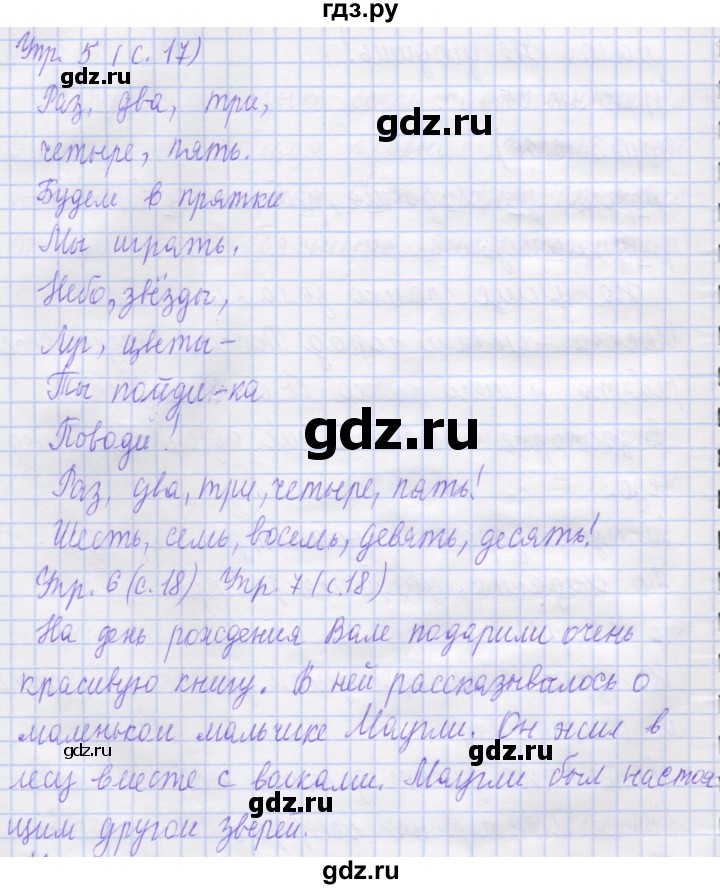 гдз.ру
Упр. 5 (с. 17)
Раз, два, три,
gdz.ru
четыре, пять.
Будем в прятки
Мы играть.
Небо, звёзды,
Луг, цветы -
Ты пойди-ка
gdz.ru
Поводи!
Раз, два, три, четыре, пять!
Шесть, семь, восемь, девять, десять!
Упр. 6 (с. 18) Упр. 7 (с. 18)
На день рождения Вале подарили очень
красивую книгу. В ней рассказывалось о
маленьком мальчике Маугли. Он жил в
gdz.ru
gdz.ru
лесу вместе с волками. Маугли был настоя
gdz.ru
gdz.ru
щим другом зверей.
gdz.ru